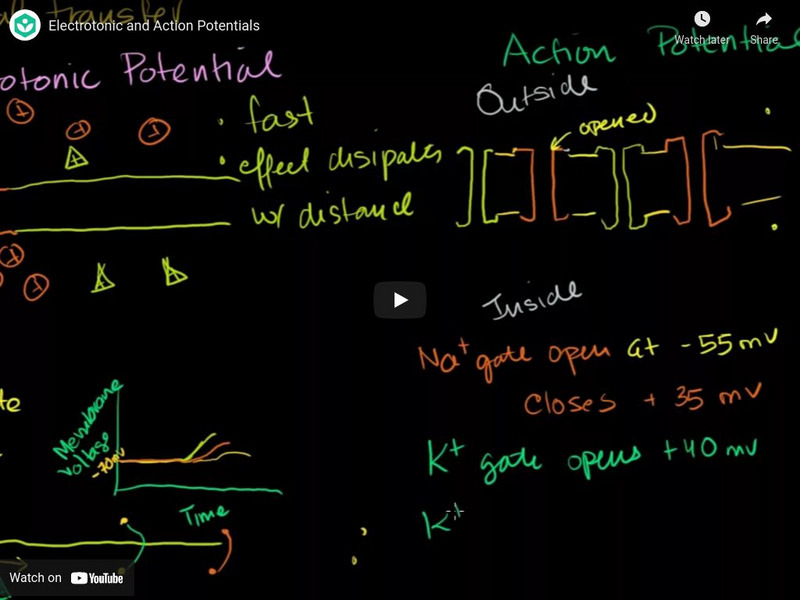 Electrotonic and Action Potentials
Watch later
Share
transfer
otonic Potential
Action Potential
• fast
• effect disipates
w/ distance
Outside
opened
Inside
Na+ gate open at -55mV
Closes + 35 mV
K+ gate opens +40mV
K+
te
Membrane
voltage
-70mV
Time
Watch on YouTube